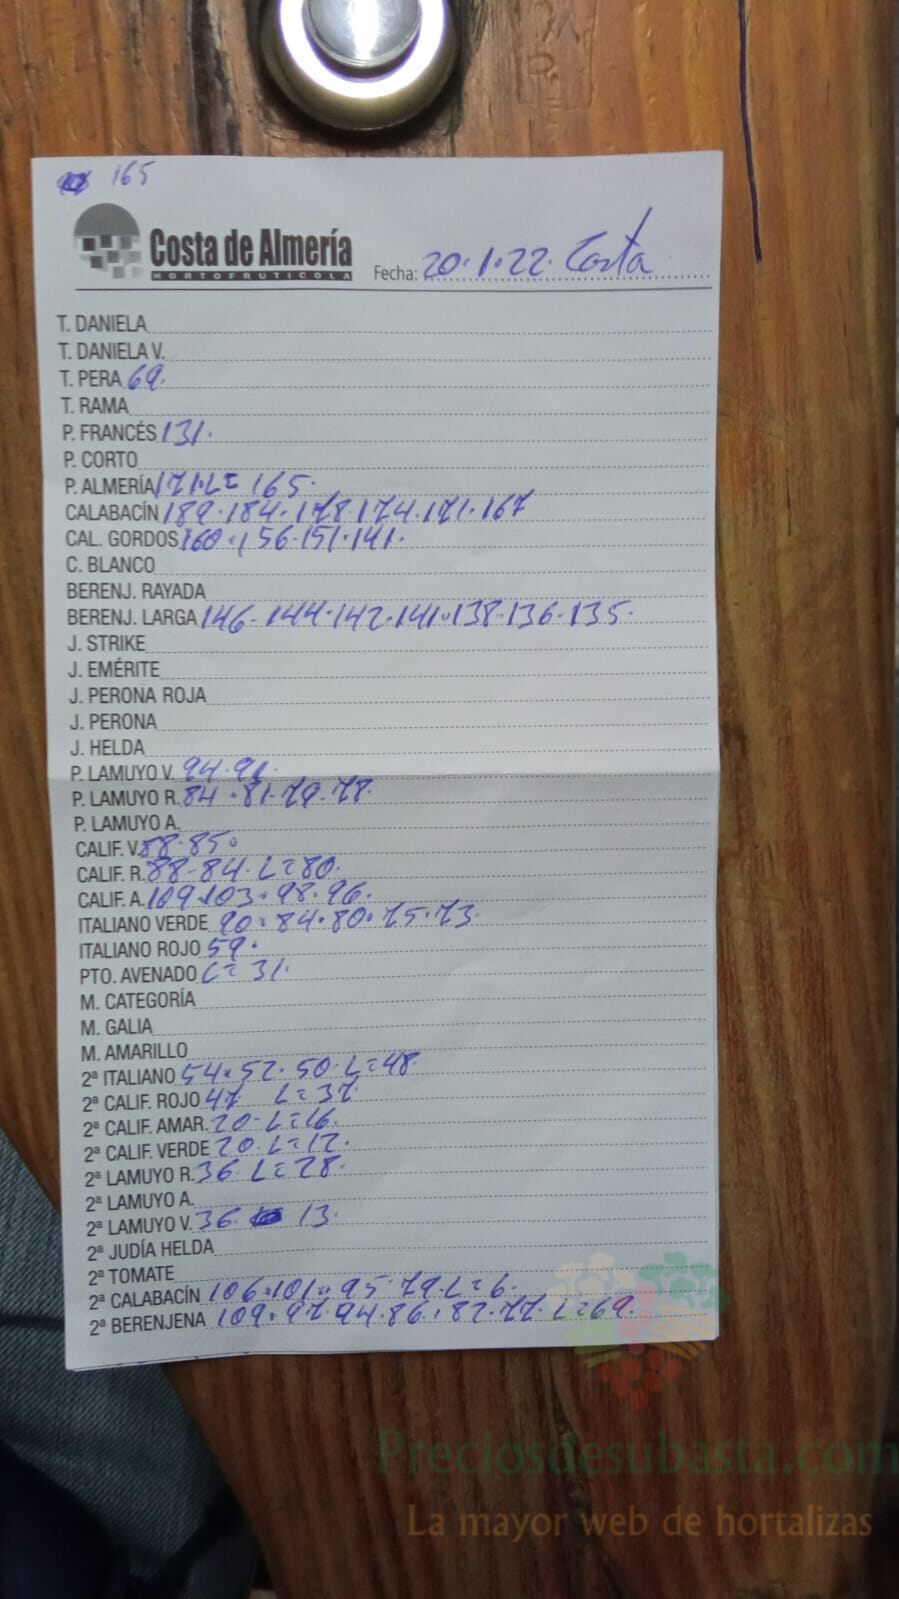 165
Costa de Almería
HORTOFRUTICOLA
Fecha: 20.1.22. Costa
T. DANIELA
T. DANIELA V.
T. PERA 69.
T. RAMA
P. FRANCÉS 131.
P. CORTO
P. ALMERÍA 171.L= 165.
CALABACÍN 189.184.178.174.171.167
CAL. GORDOS 160.156.151.141.
C. BLANCO
BERENJ. RAYADA
BERENJ. LARGA 146.144.142.141.138.136.135.
J. STRIKE
J. EMÉRITE
J. PERONA ROJA
J. PERONA
J. HELDA
P. LAMUYO V. 94.91.
P. LAMUYO R. 84.81.79.78.
P. LAMUYO A.
CALIF. V. 88.85.
CALIF. R. 88-84.L=80.
CALIF. A. 109.103.98.96.
ITALIANO VERDE 90.84.80.75.73.
ITALIANO ROJO 59.
PTO. AVENADO L=31.
M. CATEGORÍA
M. GALIA
M. AMARILLO
2ª ITALIANO 54.52.50.L=48.
2ª CALIF. ROJO 47 L=37.
2ª CALIF. AMAR. 20-L=16.
2ª CALIF. VERDE 20.L=12.
2ª LAMUYO R. 36 L=28.
2ª LAMUYO A.
2ª LAMUYO V. 36. 13.
2ª JUDÍA HELDA
2ª TOMATE
2ª CALABACÍN 106.101.95.79.L=6.
2ª BERENJENA 109.97.94.86.82.77.L=69.
Preciosdesubasta.com
La mayor web de hortalizas